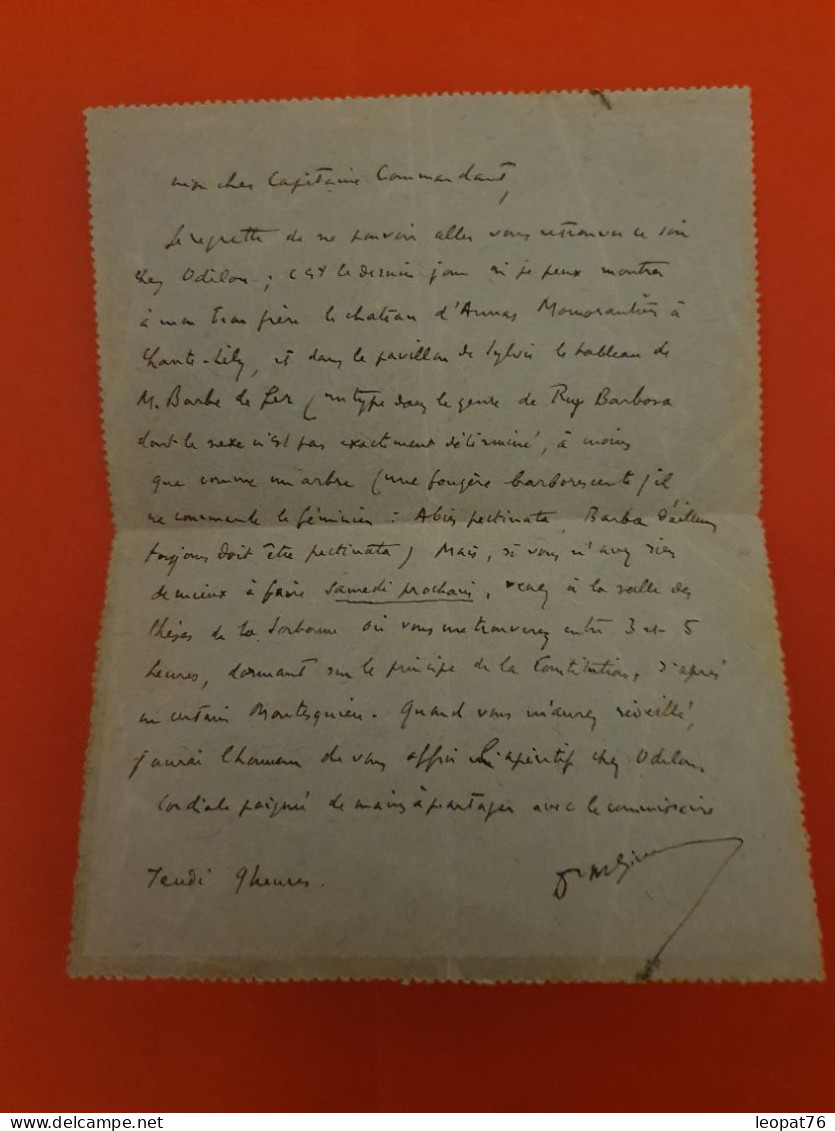 mon cher Capitaine Commandant,
Je regrette de ne pouvoir aller vous retrouver ce soir
chez Odilon ; c'est le dernier jour où je peux montrer
à mon frère le chateau d'Annas Momorantiès à
Chante-Lily, et dans le pavillon de Sylvie le tableau de
M. Barbe de Fer (un type dans le genre de Ruy Barbosa
dont le sexe n'est pas exactement déterminé, à moins
que comme un arbre (une fougère barborescente) il
ne commande le féminin : Abies pectinata, Barba d'ailleurs
toujours doit être pectinata) Mais, si vous n'avez rien
de mieux à faire samedi prochain, venez à la salle des
thèses de la Sorbonne où vous me trouverez entre 3 et 5
heures, dormant sur le principe de la Constitution, d'après
un certain Montesquieu. Quand vous m'aurez réveillé,
j'aurai l'honneur de vous offrir l'apéritif chez Odilon.
Cordiale poignée de mains à partager avec le commissaire
Jeudi 9 heures.
leopat76